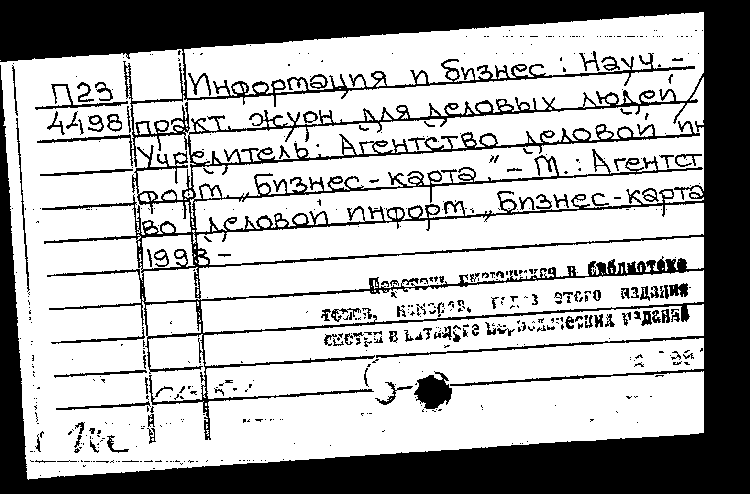 П23
4498
Информация и бизнес : Науч. -
практ. журн. для деловых людей /
Учредитель : Агентство деловой ин
форм. „Бизнес - карта". - М. : Агентст
во деловой информ. „Бизнес - карта
1998 -
Перечень имеющихся в библиотеке
томов, номеров, годов этого издания
смотри в каталоге периодических изданий